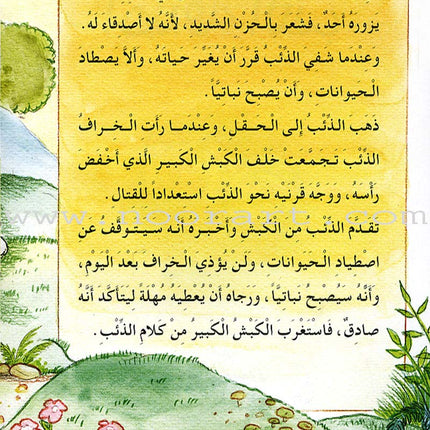 يَزورَهُ أَحَدٌ، فَشَعَرَ بِالْحُزْنِ الشَّديدِ، لأَنَّهُ لا أَصْدِقاءَ لَهُ.
وَعِنْدَما شفي الذِّئْبُ قَرَّرَ أَن يُغَيِّرَ حَياتَهُ، وَأَلاَّ يَصْطادَ
الْحَيوانات، وَأَنْ يُصْبِحَ نَباتيَّاً.
ذَهَبَ الذِّئْبُ إِلى الْحَـقْـلِ، وَعِنْدَمـا رَأَت الْـخـرافُ
الذِّئبَ تَـجمَّعَتْ خَلْفَ الْكَبْشِ الْكَبيـرِ الَّذي أَخْفَضَ
رَأْسَهُ، وَوَجَّهَ قَرْنَيْهِ نَحْوَ الذِّئبِ اسْتعْداداً للْقتالِ.
تَقَدَّمَ الذِّئْبُ منَ الْكَبْشِ وَأَخْبَرَهُ أَنَّهُ سَيَتَوقَّفُ عَن
اصْطيادِ الْـحَيَوانات، وَلَنْ يُؤْذي الْخرافَ بَعْدَ الْيَوْمِ،
وَأَنَّهُ سَيُصْبحُ نَباتيَّاً، وَرَجاهُ أَنْ يُعْطيهِ مُهْلَةً ليَتأَكَّدَ أَنَّهُ
صادِقٌ، فَاسْتَغْرَبَ الْكَبْشُ الْكَبيرُ مِنْ كَلامِ الذِّئْبِ.
www.noorart.com